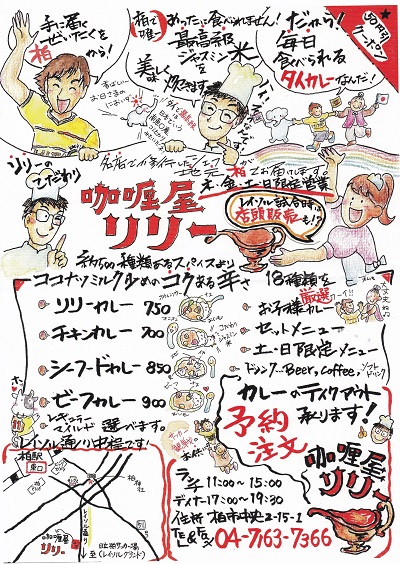 手に届く
ぜいたくを
柏
から!
柏で
唯一
めったに食べられません!
最高級
ジャスミン
米
を
美味しく
炊きます。
だから!
毎日
食べられる
タイカレーなんだ!
50円引
クーポン
リリーの
こだわり
名店で修行したシェフが
地元柏でお届けします。
木・金・土・日限定営業
咖喱屋
リリー
レイソル試合時は
店頭販売も!?
ココナツミルク多めのコクある辛さ
リリーカレー 750
チキンカレー 700
シーフードカレー 850
ビーフカレー 900
レギュラー
マイルド
選べます。
18種類を
厳選
お子様カレー
セットメニュー
土・日限定メニュー
ドリンク…Beer, Coffee, ソフトドリンク
レイソル通り中程です!
柏駅
東口
柏神社
レイソル通り
咖喱屋
リリー
日立柏サッカー場
(レイソルグランド)
カレーのテイクアウト
承ります!
予約
注文
咖喱屋
リリー
ランチ 11:00~15:00
ディナー17:00~19:30
住所 柏市中央2-15-1
TEL&FAX 04-7163-7366